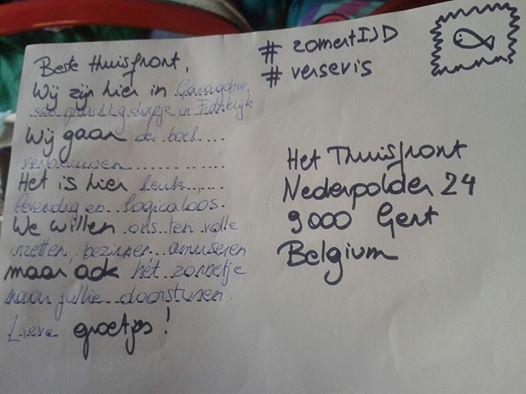 Beste thuisfront,
Wij zijn hier in
dorpje in Frankrijk
Wij gaan de boel....
verbouwen..............
Het is hier leuk.....
levendig en logicaloos.
We willen ons ten volle
inzetten, bezinnen amuseren
maar ook het zonnetje
naar jullie doorsturen.
Lieve groetjes!
# zomertIJD
# versevis
Het Thuisfront
Nederpolder 24
9000 Gent
Belgium